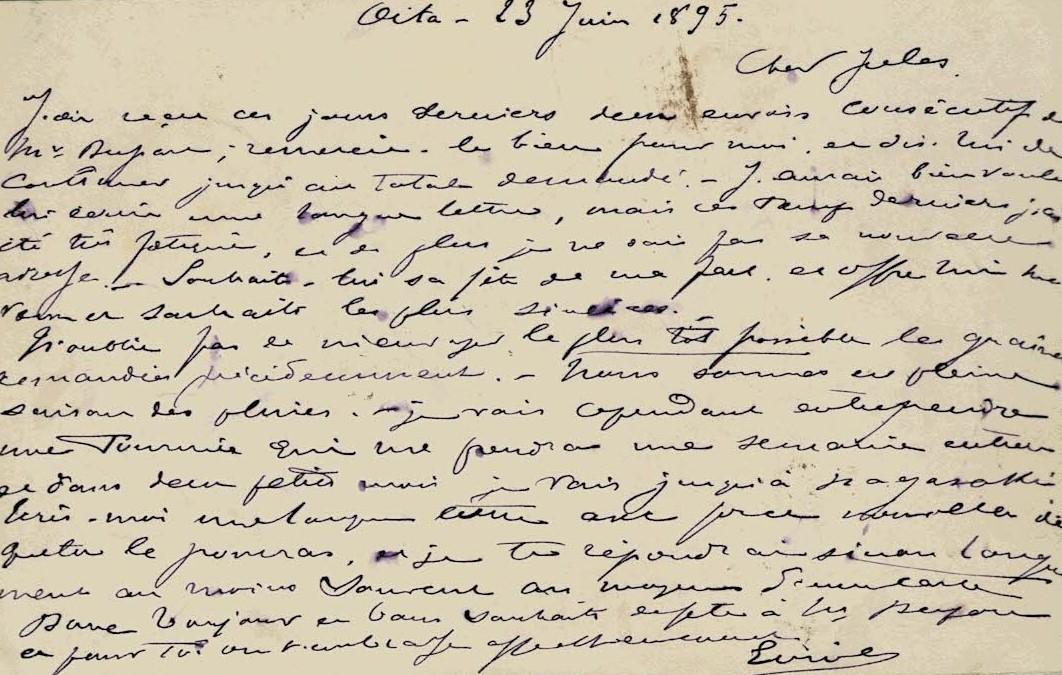 Oita - 23 Juin 1895.
Cher Jules.
J'ai reçu ces jours derniers deux envois consécutifs de
Mr Dupon ; remercie-le bien pour moi, et dis-lui de
continuer jusqu'au total demandé. - J'aurai bien voulu
lui écrire une longue lettre, mais ces temps derniers j'ai
été très fatigué, et de plus je ne sais pas sa nouvelle
adresse. - Souhaite-lui sa fête de ma part, et offre lui
les plus sincères.
N'oublie pas de m'envoyer le plus tôt possible les graines
demandées précédemment. - Nous sommes en pleine
saison des pluies. - je vais cependant entreprendre
une Tournée qui me prendra une semaine entière
et dans deux petits mois je vais jusqu'à Nagasaki
Ecris-moi une longue lettre avec force nouvelles dès
que tu le pourras, et je te répondrai sinon longue
ment au moins souvent au moyen d'une carte
Donc bonjour et bons souhaits de fête à Mr
et pour toi on t'embrasse affectueusement